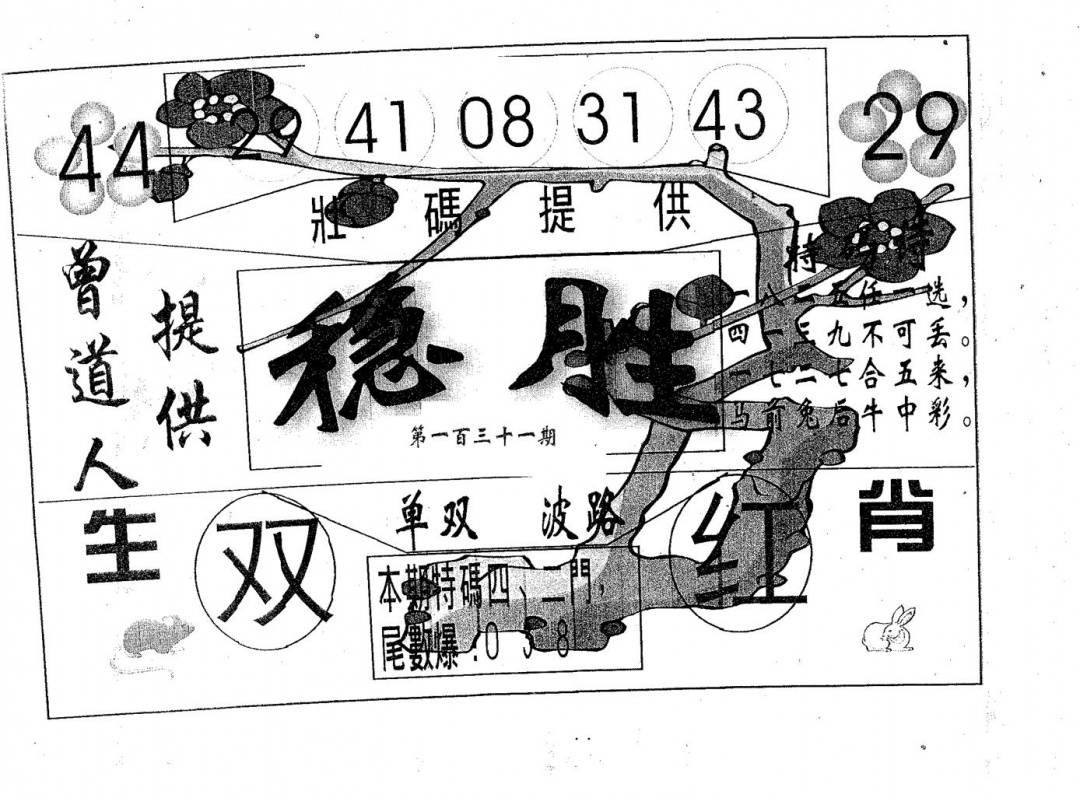 44 29 41 08 31 43 29
壯碼提供
曾道人
提供
稳胜
第一百三十一期
特码诗
一八二五任一选，
四一三九不可丢。
一七二七合五来，
马前兔后牛中彩。
单双 波路
生 双 红 肖
本期特碼四、二門，
尾數爆：0 3 8